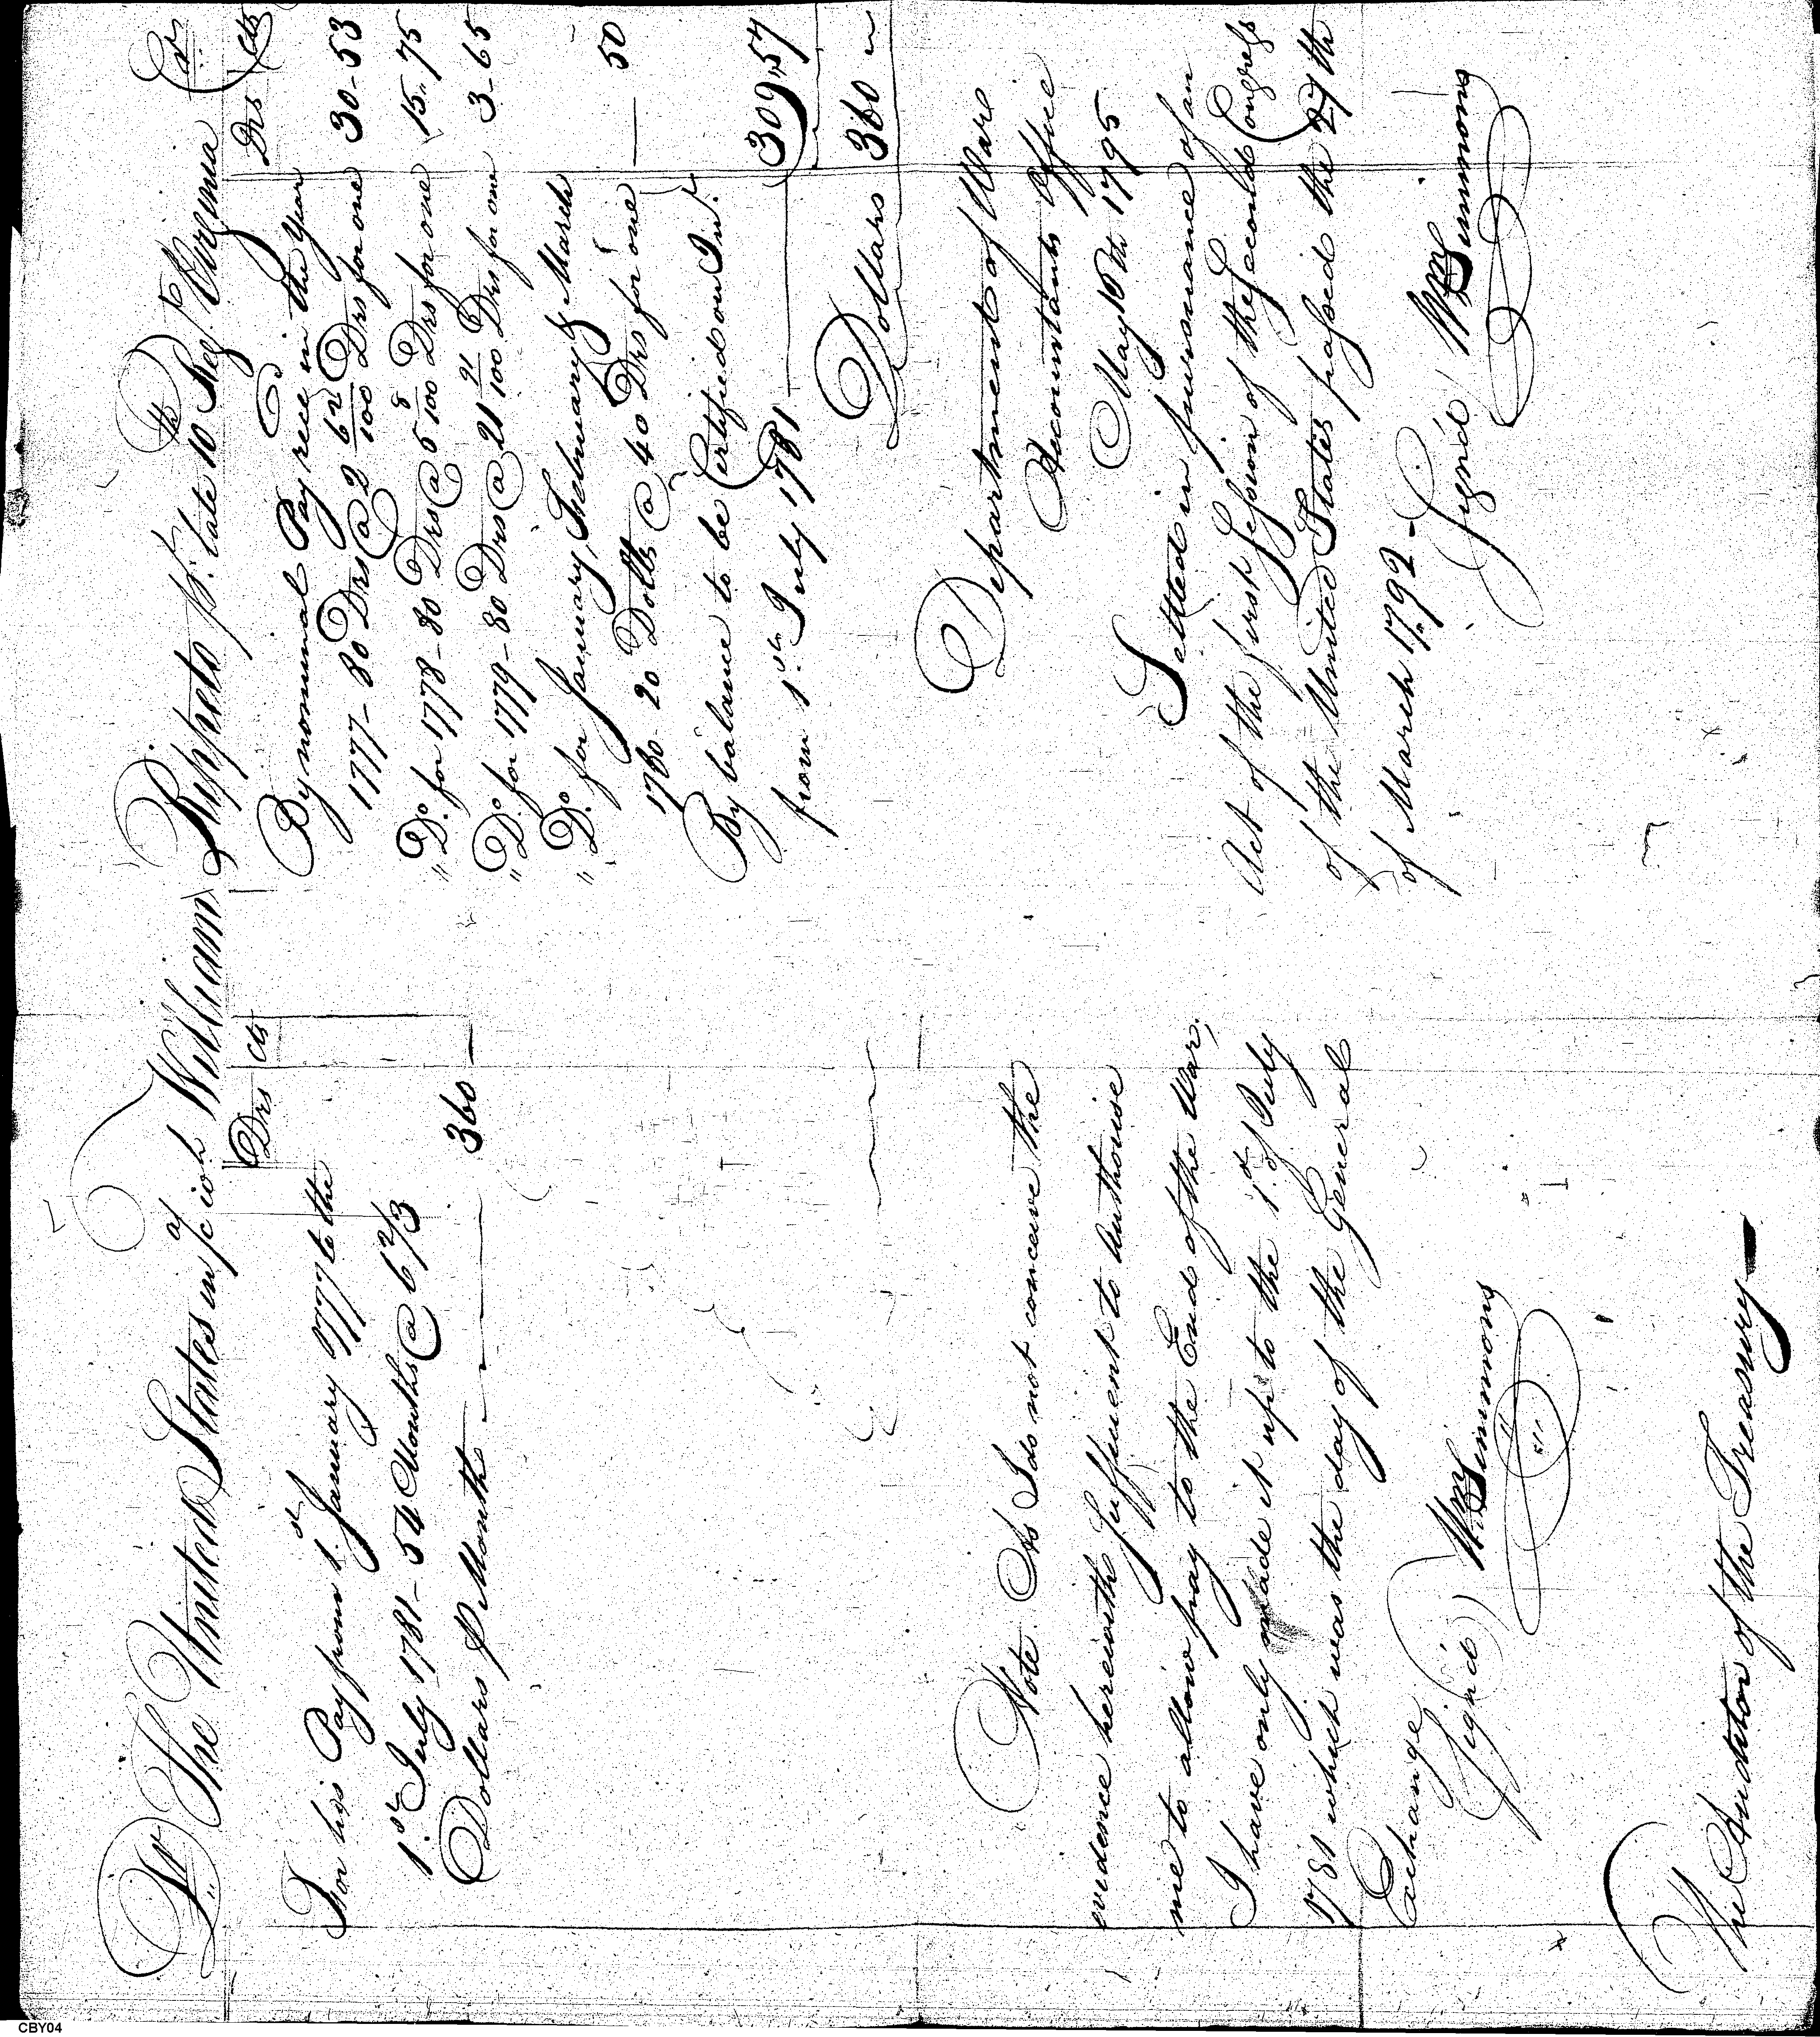 Dr The United States in a/c with William Rippeto pt. late 10th Regt Virginia Cr
Drs cts
For his Pay from 1st January 1777 to the
1st July 1781 - 54 Months @ 6 2/3
Dollars p Month 360 —
Note. As I do not conceive the
evidence herewith sufficient to Authorise
me to allow pay to the End of the War,
I have only made it up to the 1st of July
1781 which was the day of the General
Exchange
Sign'd) Wm Simmons
The Auditor of the Treasury
Drs Cts
By nominal Pay rece'd in the Year
1777 - 80 Drs @ 2 62/100 Drs for one 30-53
" Do. for 1778 - 80 Drs @ 5 8/100 Drs for one 15..75
" Do. for 1779 - 80 Drs @ 21 91/100 Drs for one 3-65
" Do. for January, February & March
1780 - 20 Dolls @ 40 Drs for one — 50
By balance to be Certified on Int.
from 1st July 1781 309,,57
Dollars 360 ~
Department of War
Accountants Office
May 16th 1795
Settled in pursuance of an
Act of the first Session of the Second Congress
of the United States passed the 27th
of March 1792 -
Signd / Wm Simmons
CBY04